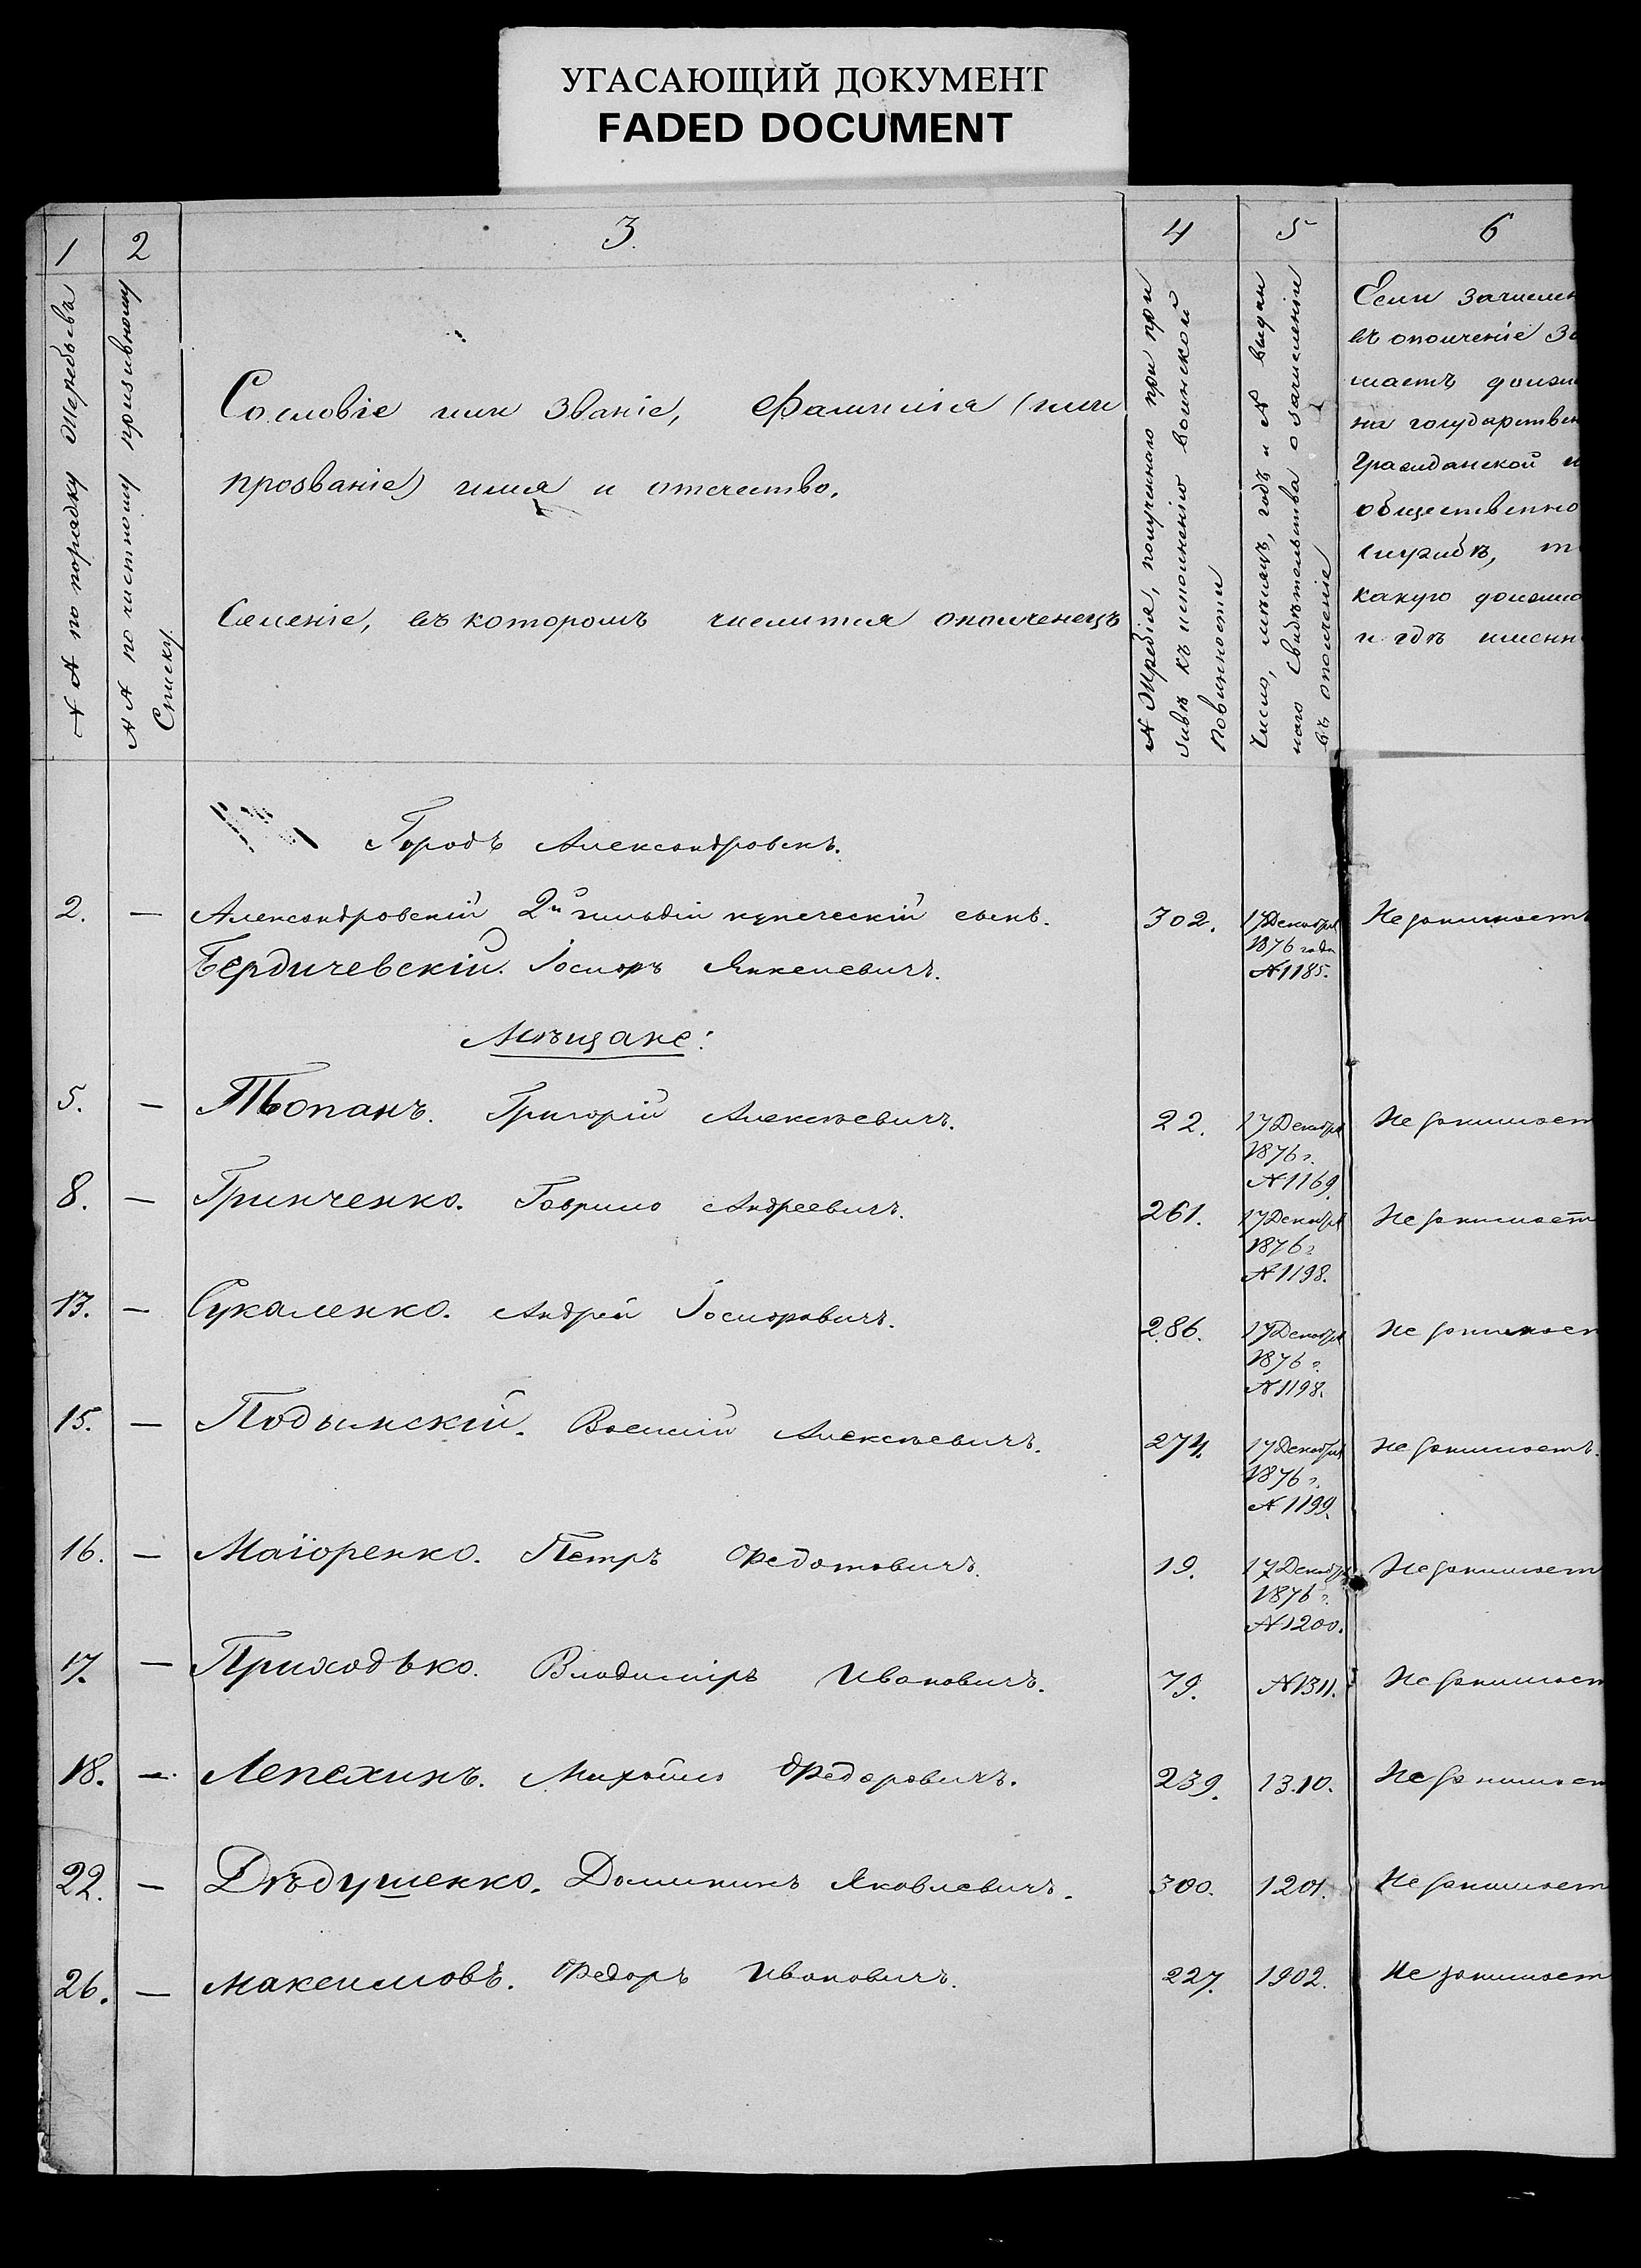 УГАСАЮЩИЙ ДОКУМЕНТ
FADED DOCUMENT
1
2
3.
4
5
6
№№ по порядку Жеребьевъ
№№ по частному призывному
Списку.
Сословіе или Званіе, Фамилія (или
прозваніе) имя и отчество.
Селеніе, въ которомъ числится ополченецъ
№ Жребія, полученнаго при при
зывѣ къ исполненію воинской
Повинности
Число, мѣсяцъ, годъ и № выдан
наго Свидѣтельства о зачисленіи
въ ополченіе
Если зачислен
въ ополченіе За
маетъ должн
на государствен
Гражданской и
общественно
службѣ, т
какую должно
и гдѣ именн
Городъ Александровскъ.
2. — Александровскій 2й гильдіи купеческій сынъ. 302. 17 Декабря Не занимаетъ
1876 года
Бердичевскій. Іосифъ Янкелевичъ. №1185.
Мѣщане:
5. — Тьопанъ. Григорій Алексѣевичъ. 22. 17 Декабря Не занимает
1876 г.
№1169.
8. — Гринченко. Гаврило Андреевичъ. 261. 17 Декабря Не занимает
1876 г
№1198.
13. — Сукаленко. Андрей Іосифовичъ. 286. 17 Декабря Не занимает
1876 г.
№1198.
15. — Подымскій. Василій Алексѣевичъ. 274. 17 Декабря Не занимаетъ.
1876 г.
№1199.
16. — Маіоренко. Петръ Федотовичъ. 19. 17 Декабря Не занимает
1876 г.
№1200.
17. — Приходько. Владиміръ Ивановичъ. 79. №1311. Не занимает
18. — Лепехинъ. Михайло Федоровичъ. 239. 1310. Не занимает
22. — Дѣдушенко. Доминикъ Яковлевичъ. 300. 1201. Не занимает
26. — Максимовъ. Федоръ Ивановичъ. 227. 1902. Не занимает